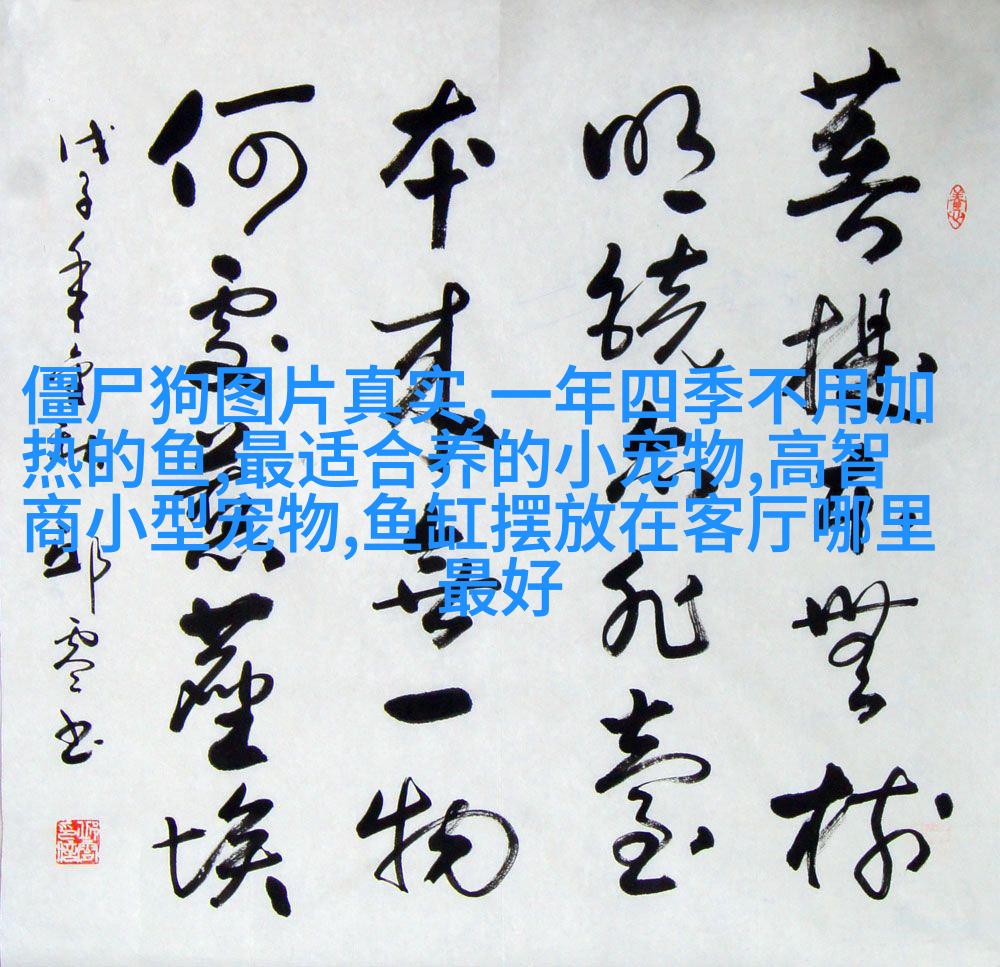 菩提無樹
明鏡亦非臺
本来無一物
何處惹塵埃
戊子年秋邱零书
僵尸狗图片真实,一年四季不用加
热的鱼,最适合养的小宠物,高智
商小型宠物,鱼缸摆放在客厅哪里
最好